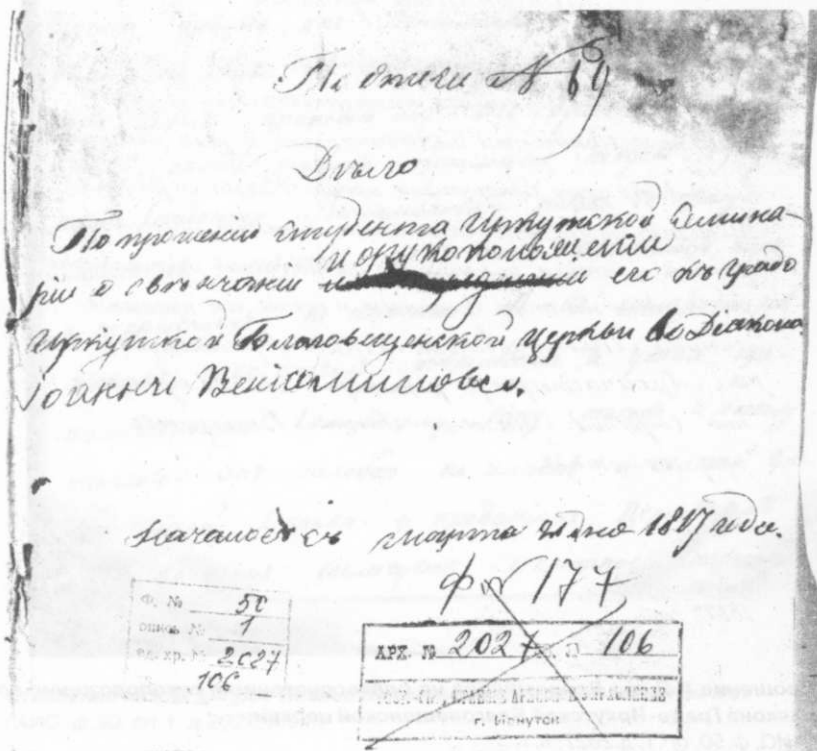 По описи № 69
Дѣло
По прошению студента Иркутской Семина-
рiи о свѣнчанiи и о рукоположенiи его къ градо
Иркутской Благовѣщенской церкви во Дiакона
Iоанна Венiаминова.
Началось съ марта дня 1817 года.
Ф № 177
Фо. № 50
опись № 1
Ед. хр. № 2027
106
АРХ. № 2027 106
г. Иркутск